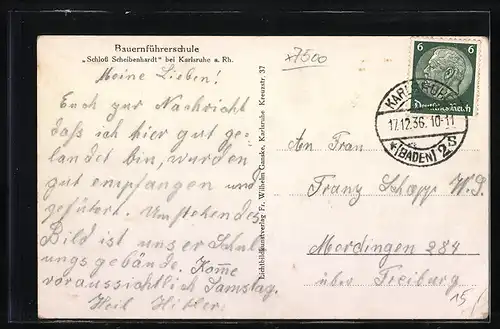 Bauernführerschule
„Schloß Scheibenhardt" bei Karlsruhe a. Rh.
x7500
Meine Lieben!
Euch zur Nachricht
daß ich hier gut ge-
landet bin, wurden
gut empfangen und
gefütert. Umstehendes
Bild ist unser Schul-
ungsgebände. Komme
voraussichtlich Samstag.
Heil Hitler.
Lichtbildkunstverlag Fr. Wilhelm Ganske, Karlsruhe, Kreuzstr. 37
6 6
Deutsches Reich
KARLSRUHE
17.12.36. 10-11
*(BADEN) 2s
An Frau
Franz Schapp W.S.
Mordingen 284
über Freiburg
15